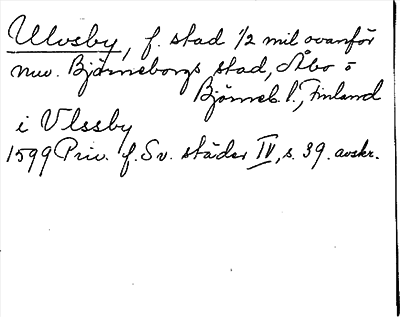 Ulvsby, f. stad 1/2 mil ovanför
nuv. Björneborgs stad, Åbo o
Björneb. l., Finland
i Vlssby
1599 Priv. f. Sv. städer IV, s. 39. avskr.